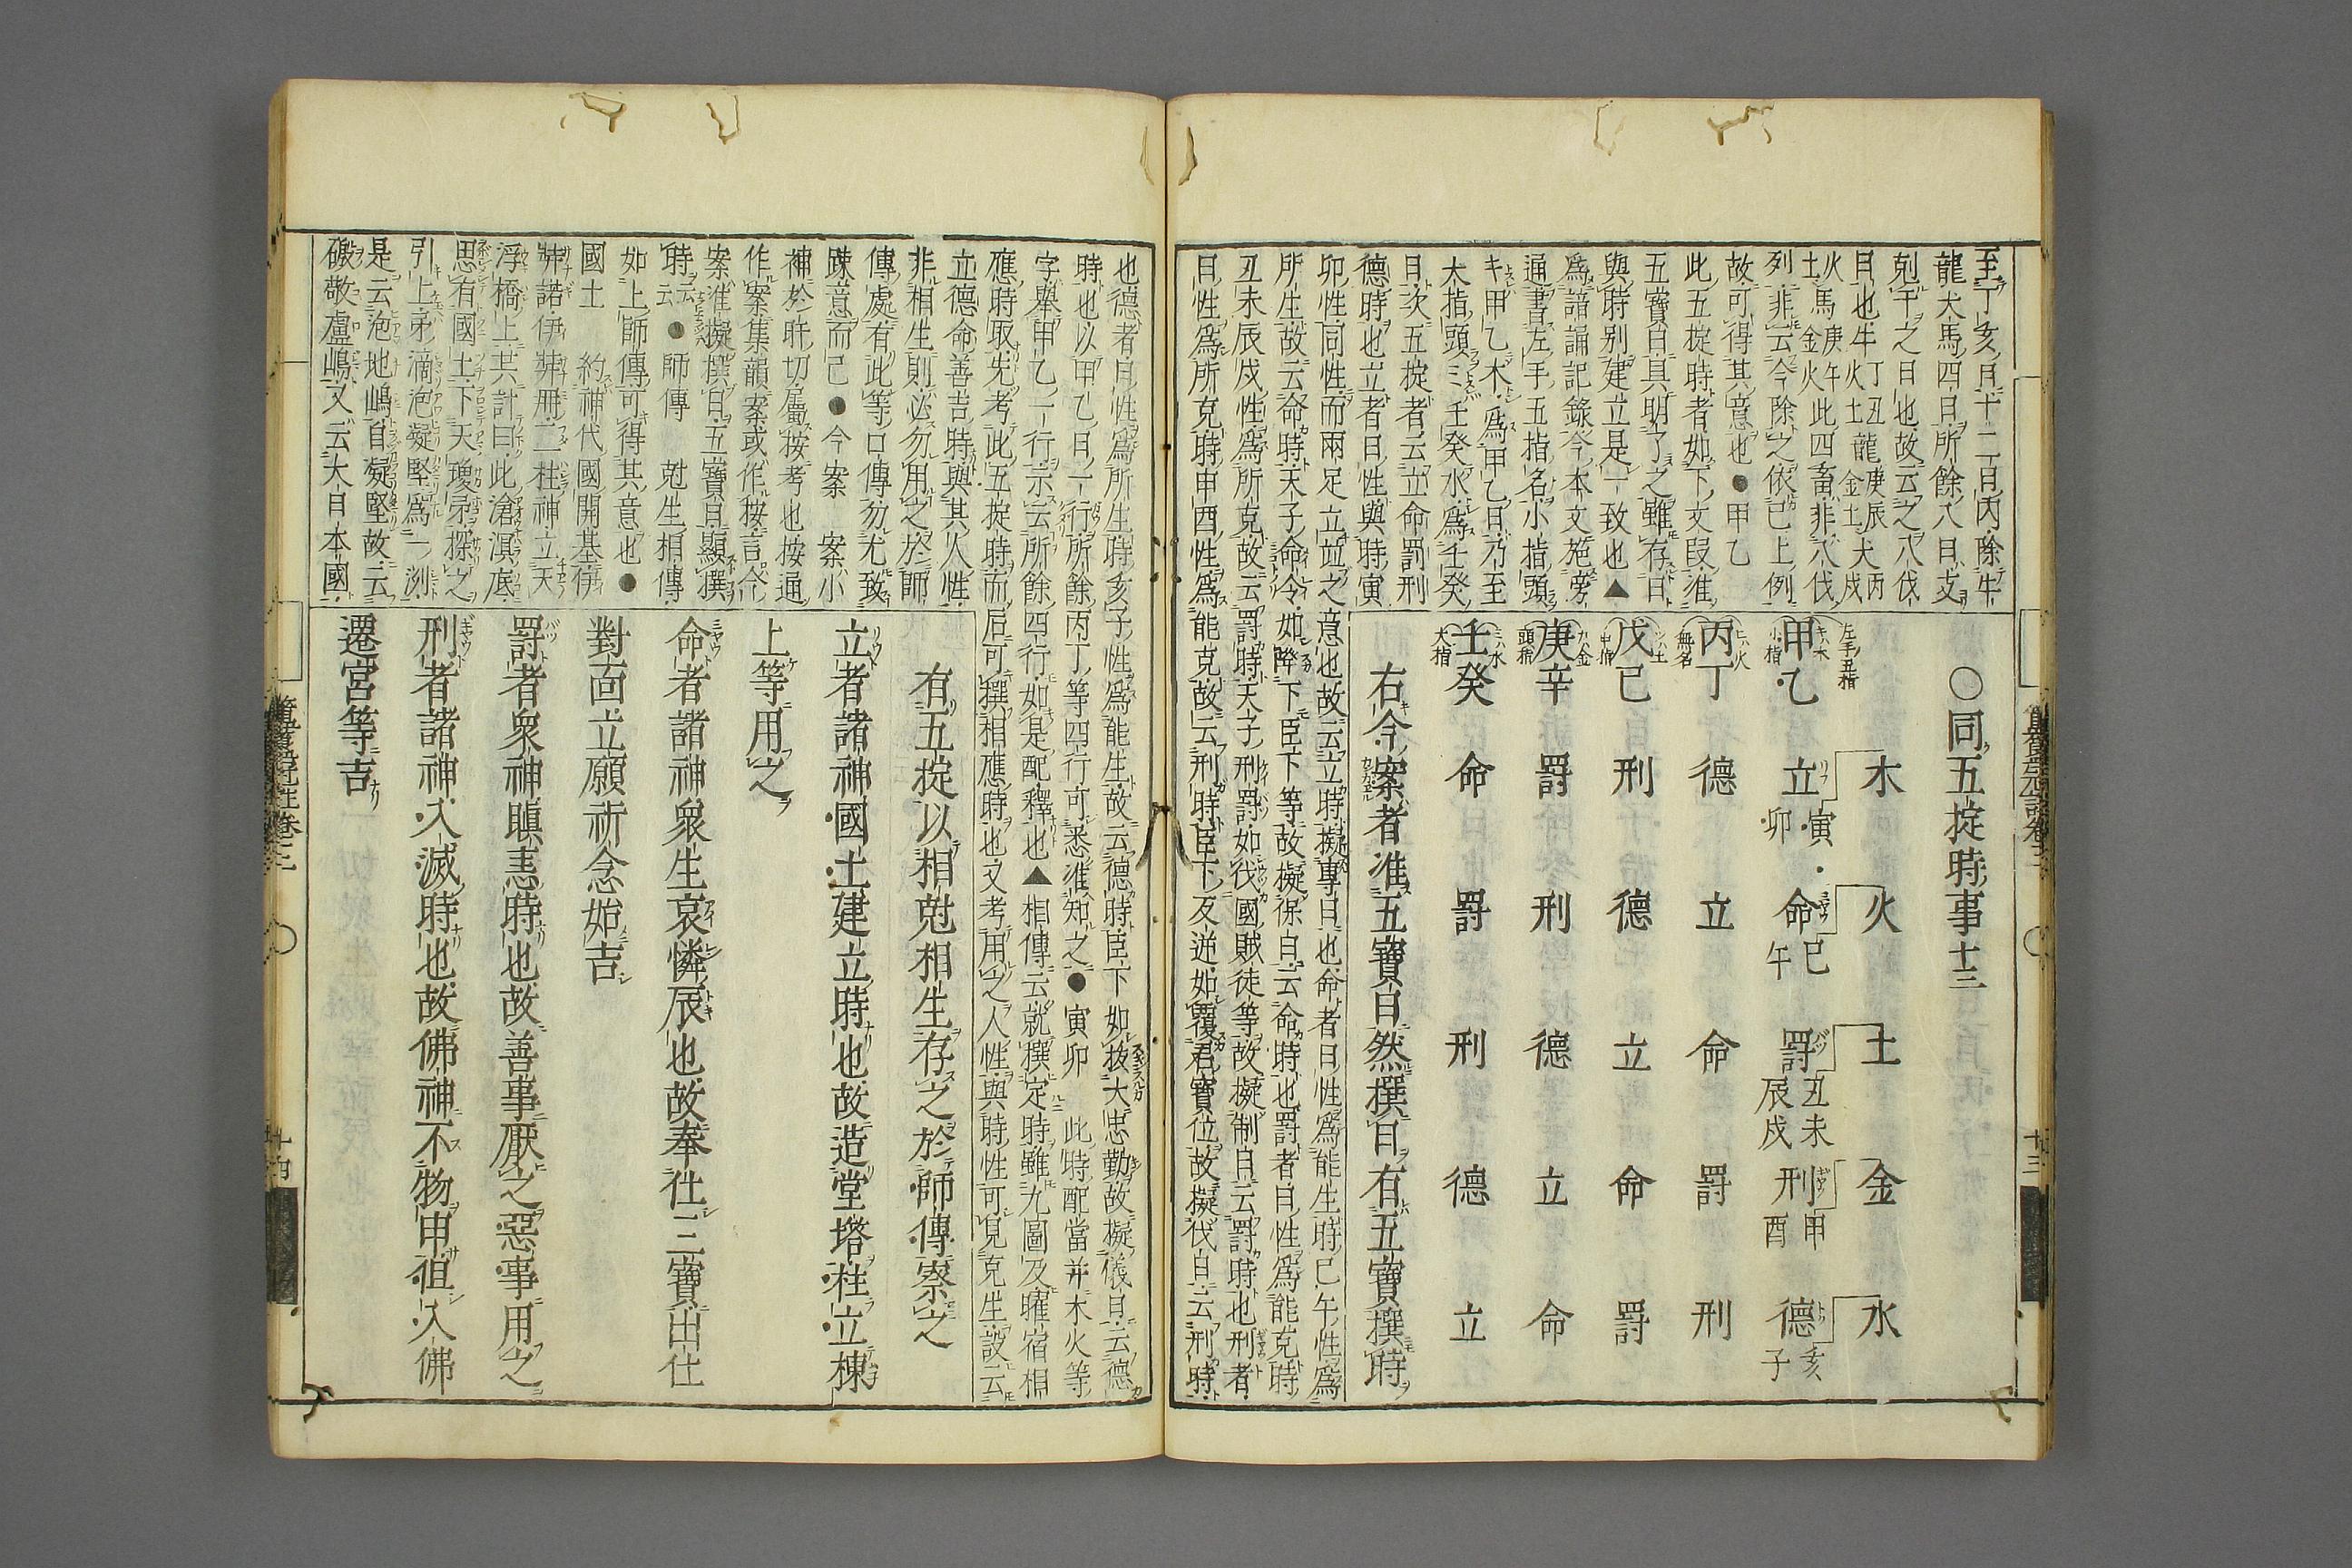 至丁亥日十二日内除牛
龍犬馬四日所餘八日支
剋干之日也故云之八伐
日也牛丁丑火土龍庚辰金土犬丙戌
火土馬庚午金火此四畜非八伐
列非云今除之依已上例
故可得其意也●甲乙
此五掟時者如下文段准
五寶日具明了之雖存日
與時別建立是一致也▲
爲諳誦記錄今本文施旁
通書左手五指名小指頭
キ甲乙木爲甲乙日乃至
大指頭ミ壬癸水爲壬癸
日次五掟者云立命罸刑
德時也立者日性與時寅
卯性同性而兩足立竝之意也故云立時擬專日也命者日性爲能生時巳午性爲
所生故云命時天子命令如降下臣下等故擬保日云命時也罸者日性爲能克時
丑未辰戌性爲所克故云罸時天子刑罸如伐國賊徒等故擬制日云罸時也刑者
日性爲所克時申酉性爲能克故云刑時臣下反逆如覆君寶位故擬伐日云刑時
○同五掟時事十三
木 火 土 金 水
左手五指
キハ木 小指 甲乙 立 寅卯 命 巳午 罸 丑未辰戌 刑 申酉 德 亥子
ヒハ火 無名 丙丁 德 立 命 罸 刑
ツハ土 中指 戊己 刑 德 立 命 罸
カハ金 頭指 庚辛 罸 刑 德 立 命
ミハ水 大指 壬癸 命 罸 刑 德 立
右今案者准五寶日然撰日有五寶撰時
十三
也德者日性爲所生時亥子性爲能生故云德時臣下如拔大忠勤故擬儀日云德
時也以甲乙日一行所餘丙丁等四行可悉准知之●寅卯 此時配當并木火等
字擧甲乙一行示云所餘四行如是配釋也▲相傳云就撰定時雖九圖及曜宿相
應時取先考此五掟時而后可撰相應時也又考用之人性與時性可見克生設云
立德命善吉時與其人性
非相生則必勿用之於師
傳處有此等口傳勿尤致
踈意而已●今案 案小
補於旰切屬按考也按通
作案集韻案或作按言今
案准擬撰日五寶且顯撰
時云●師傳 尅生相傳
如上師傳可得其意也●
國土 約神代國開基伊
弉諾伊弉冊二柱神立天
浮橋上共計曰此滄溟底
思有國土下天瓊矛探之
引上矛滴泡凝堅爲一洲
是云泡地嶋自凝堅故云
磤馭盧嶋又云大日本國
有五掟以相尅相生存之於師傳察之
立者諸神國土建立時也故造堂塔柱立棟
上等用之
命者諸神衆生哀憐辰也故奉仕三寶出仕
對面立願祈念始吉
罸者衆神瞋恚時也故善事厭之惡事用之
刑者諸神入滅時也故佛神不物申徂入佛
遷宮等吉
十四